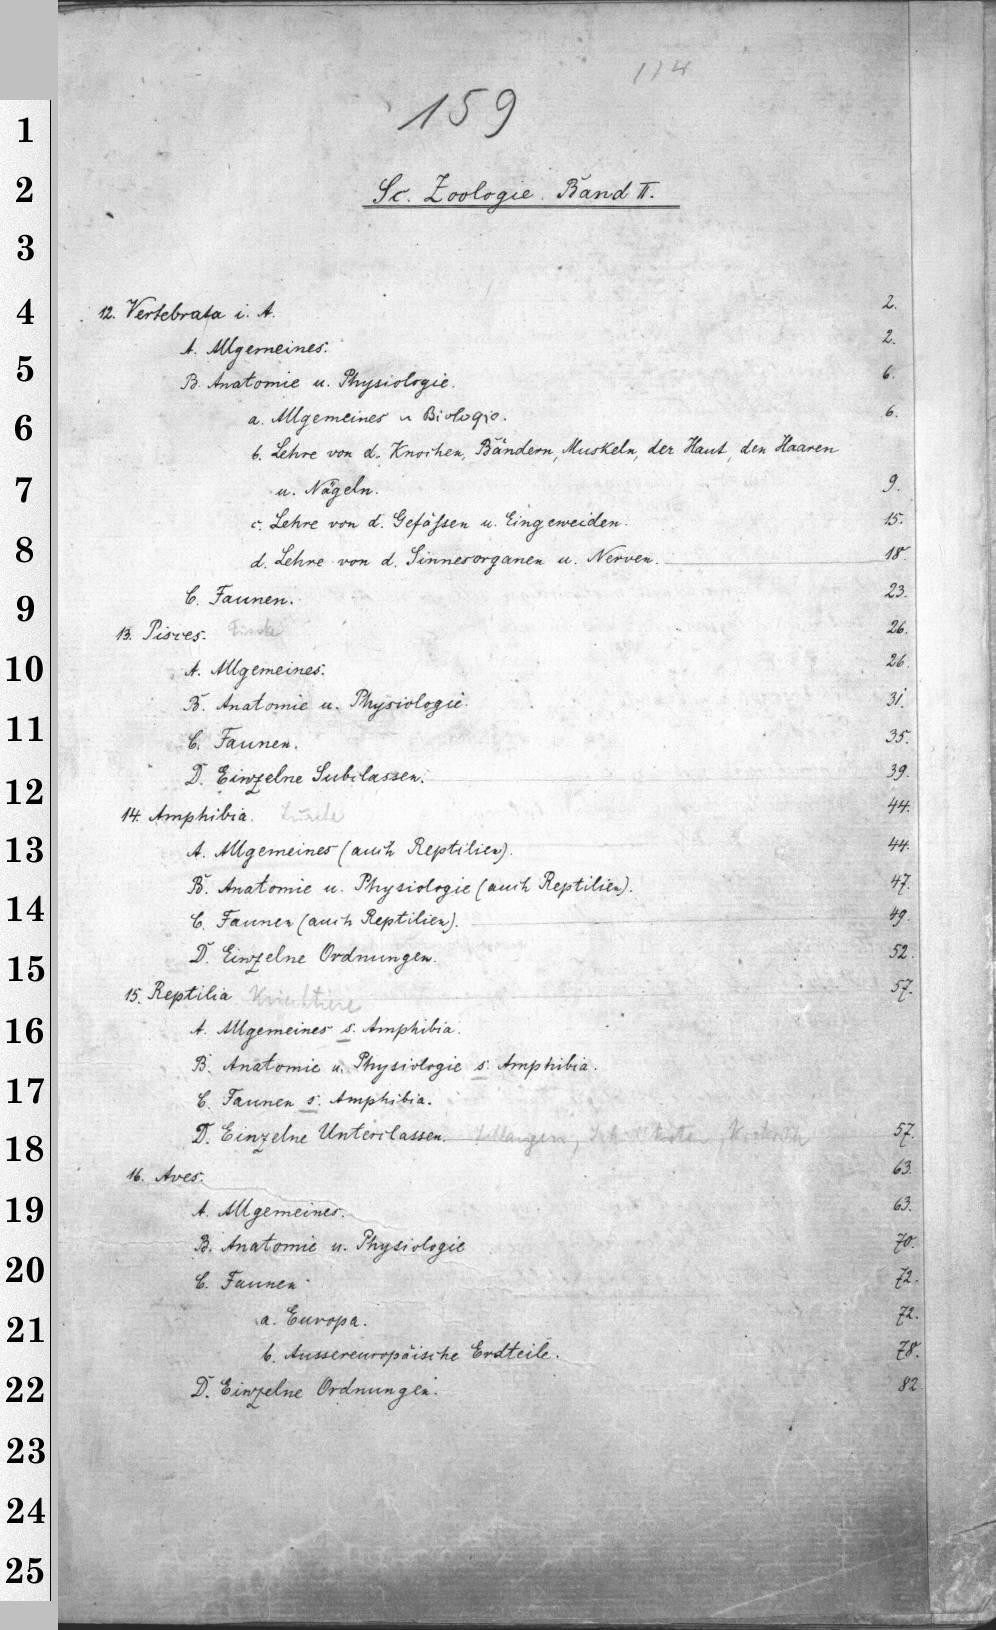 174
159
Sc. Zoologie. Band II.
12. Vertebrata i. A. 2.
A. Allgemeines. 2.
B. Anatomie u. Physiologie. 6.
a. Allgemeines u Biologie. 6.
b. Lehre von d. Knochen, Bändern, Muskeln, der Haut, den Haaren
u. Nägeln. 9.
c. Lehre von d. Gefässen u. Eingeweiden. 15.
d. Lehre von d. Sinnesorganen u. Nerven. 18.
C. Faunen. 23.
13. Pisces. Fische 26.
A. Allgemeines. 26.
B. Anatomie u. Physiologie. 31.
C. Faunen. 35.
D. Einzelne Subclassen. 39.
14. Amphibia. Lurche 44.
A. Allgemeines (auch Reptilien). 44.
B. Anatomie u. Physiologie (auch Reptilien). 47.
C. Faunen (auch Reptilien). 49.
D. Einzelne Ordnungen. 52.
15. Reptilia Kriechtiere 57.
A. Allgemeines s. Amphibia.
B. Anatomie u. Physiologie s. Amphibia.
C. Faunen s. Amphibia.
D. Einzelne Unterclassen. Schlangen, Schildkröten, 57.
16. Aves. 63.
A. Allgemeines. 63.
B. Anatomie u. Physiologie 70.
C. Faunen. 72.
a. Europa. 72.
b. Aussereuropäische Erdteile. 78.
D. Einzelne Ordnungen. 82
1
2
3
4
5
6
7
8
9
10
11
12
13
14
15
16
17
18
19
20
21
22
23
24
25